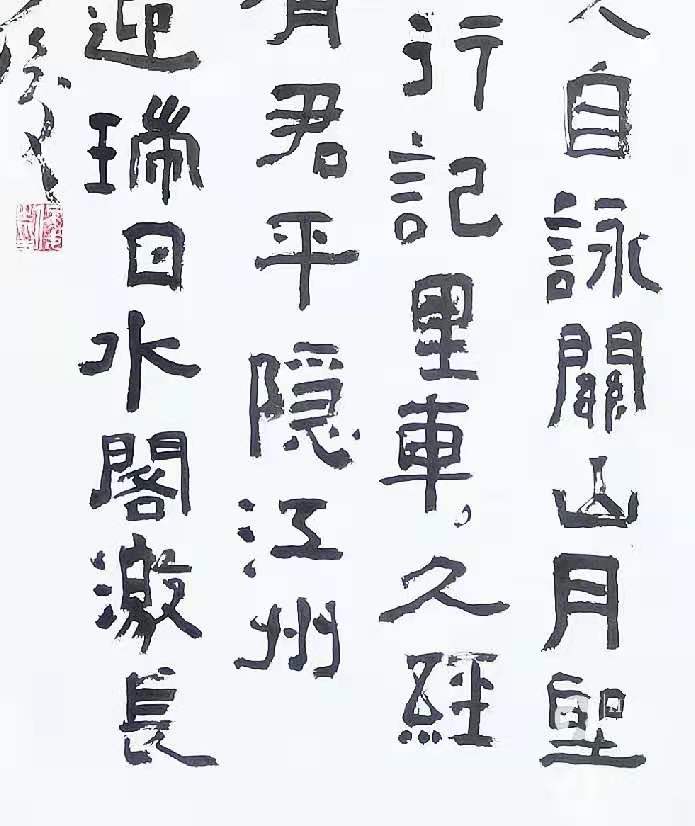 人自詠關山月聖
行記里車久經
有君平隱江州
迎瑞日水閣激長